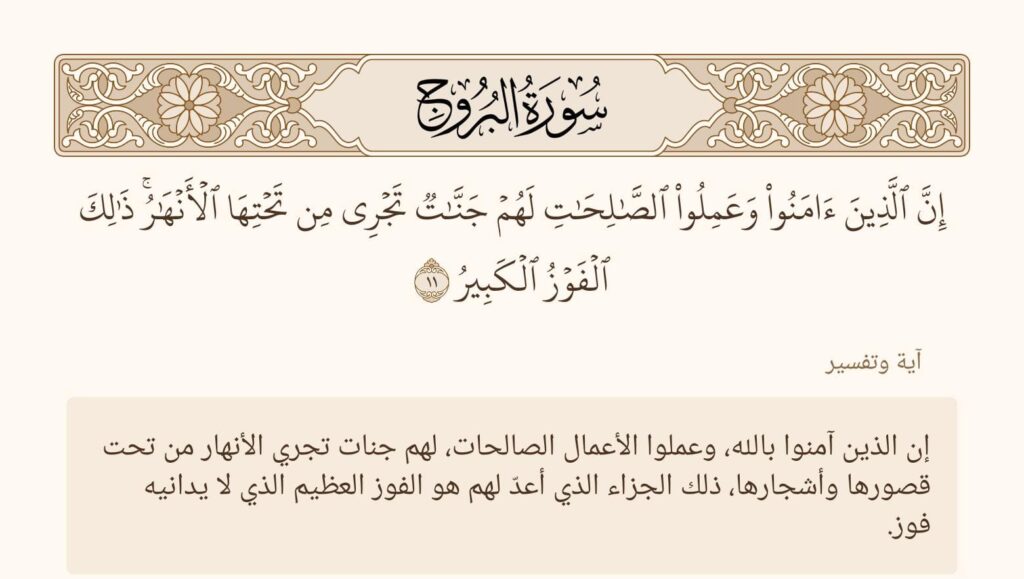 سُورَةُ البُرُوجِ
إِنَّ ٱلَّذِينَ ءَامَنُواْ وَعَمِلُواْ ٱلصَّٰلِحَٰتِ لَهُمۡ جَنَّٰتٞ تَجۡرِي مِن تَحۡتِهَا ٱلۡأَنۡهَٰرُۚ ذَٰلِكَ
ٱلۡفَوۡزُ ٱلۡكَبِيرُ ١١
آية وتفسير
إن الذين آمنوا بالله، وعملوا الأعمال الصالحات، لهم جنات تجري الأنهار من تحت
قصورها وأشجارها، ذلك الجزاء الذي أعدّ لهم هو الفوز العظيم الذي لا يدانيه
فوز.